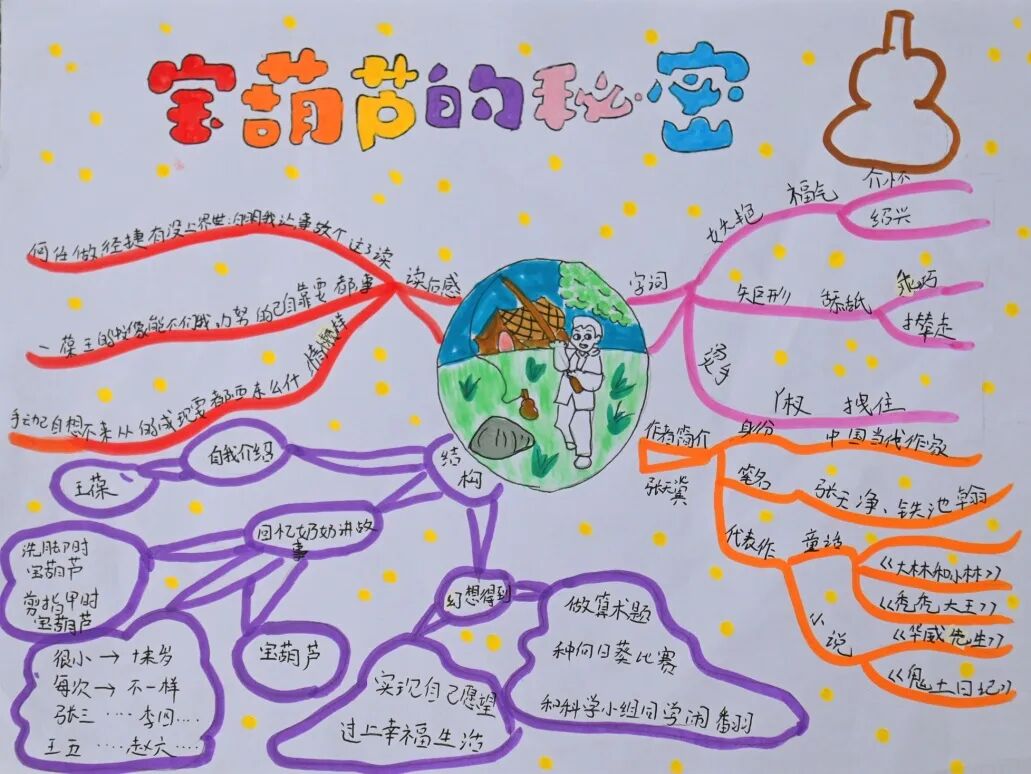 宝葫芦的秘密
何任做径捷有没上界世:白明我让事故个这了读
读后感
一葆王的故像能不们我,力努的己自靠要都事
情
手动己自想不来从的成现要都西东么什
字词
妖艳
福气
介怀
绍兴
矩形
舔舐
乖巧
撵走
拽住
作者简介
张天翼
身份
中国当代作家
笔名
张天净、铁池翰
代表作
童话
《大林和小林》
《秃秃大王》
小说
《华威先生》
《鬼土日记》
结构
自我介绍
王葆
回忆奶奶讲故事
洗脚时
宝葫芦
剪指甲时
宝葫芦
很小→十来岁
每次→不一样
张三····李四····
王五····赵六····
宝葫芦
幻想得到
实现自己愿望
过上幸福生活
做算术题
种向日葵比赛
和科学小组同学闹翻